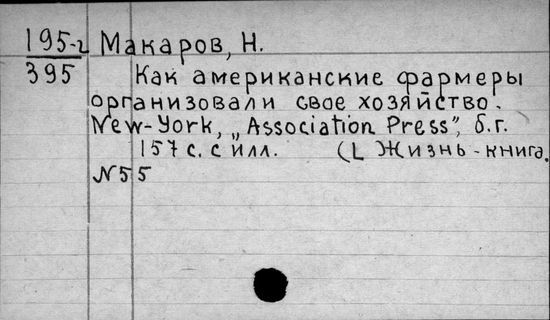 195-2 Макаров, Н.
395 Как американские фармеры
организовали свое хозяйство.
New-York, „Association Press”, б.г.
157 с. с илл. (L Жизнь-книга.
N55